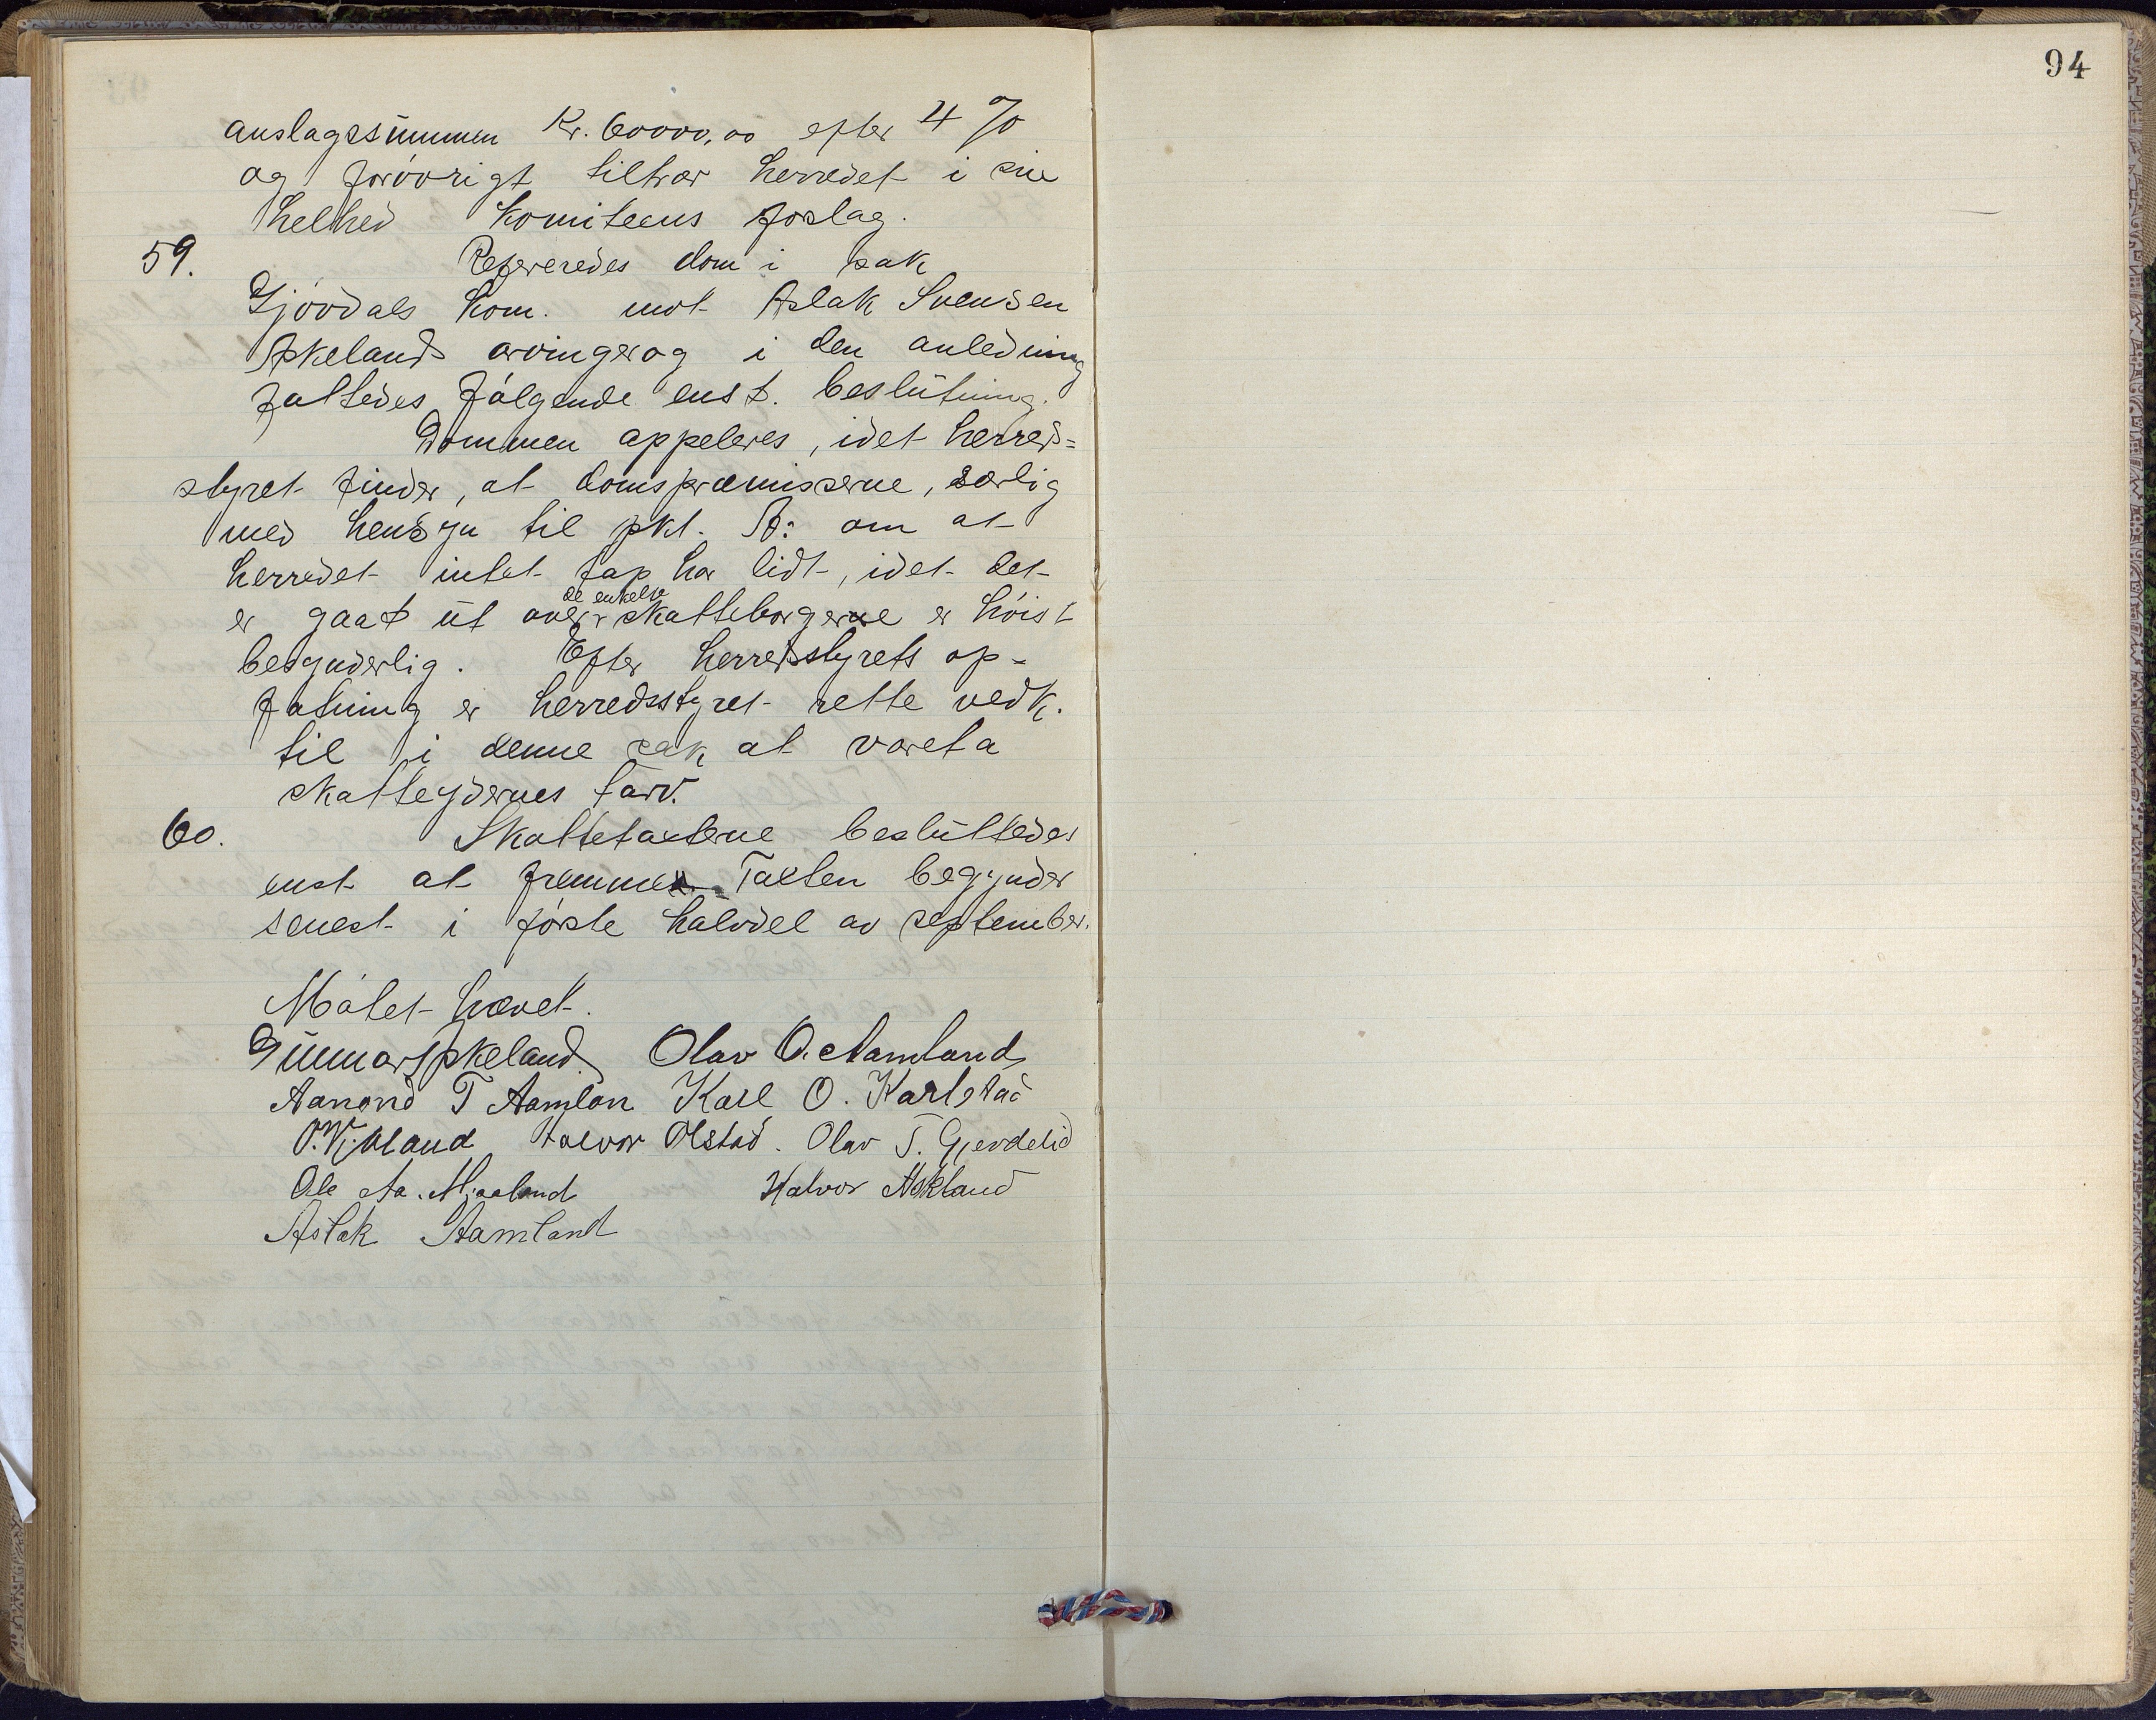 94
anslagssummen Kr. 60000,00 efter 4 %
og forøvrigt tiltrær herredet i sin
helhed komiteens forslag.
59. Refereredes dom i sak
Gjøvdals kom. mot Aslak Svensen
Askelands arvinger og i den anledning
fattedes følgende enst. beslutning.
Dommen appeleres, idet herreds=
styret finder, at domspræmisserne, særlig
med hensyn til pkt. A: om at
herredet intet tap har lidt, idet det
de enkelte
er gaat ut over skatteborgerne er høist
besynderlig. Efter herredsstyrets op-
fatning er herredsstyret rette vedk.
til i denne sak at vareta
skatteydernes tarv.
60. Skattetaxterne besluttedes
enst at fremme. Taxten begynder
senest i første halvdel av september.
Møtet hævet.
Gunnar Askeland. Olav O. Aamland
Aanond T Aamlan Karl O. Karlstad
O. Vihland Halvor Olstad. Olav T. Gjevdelid
Ole Aa. Mjaaland Halvor Askland
Aslak Aamland